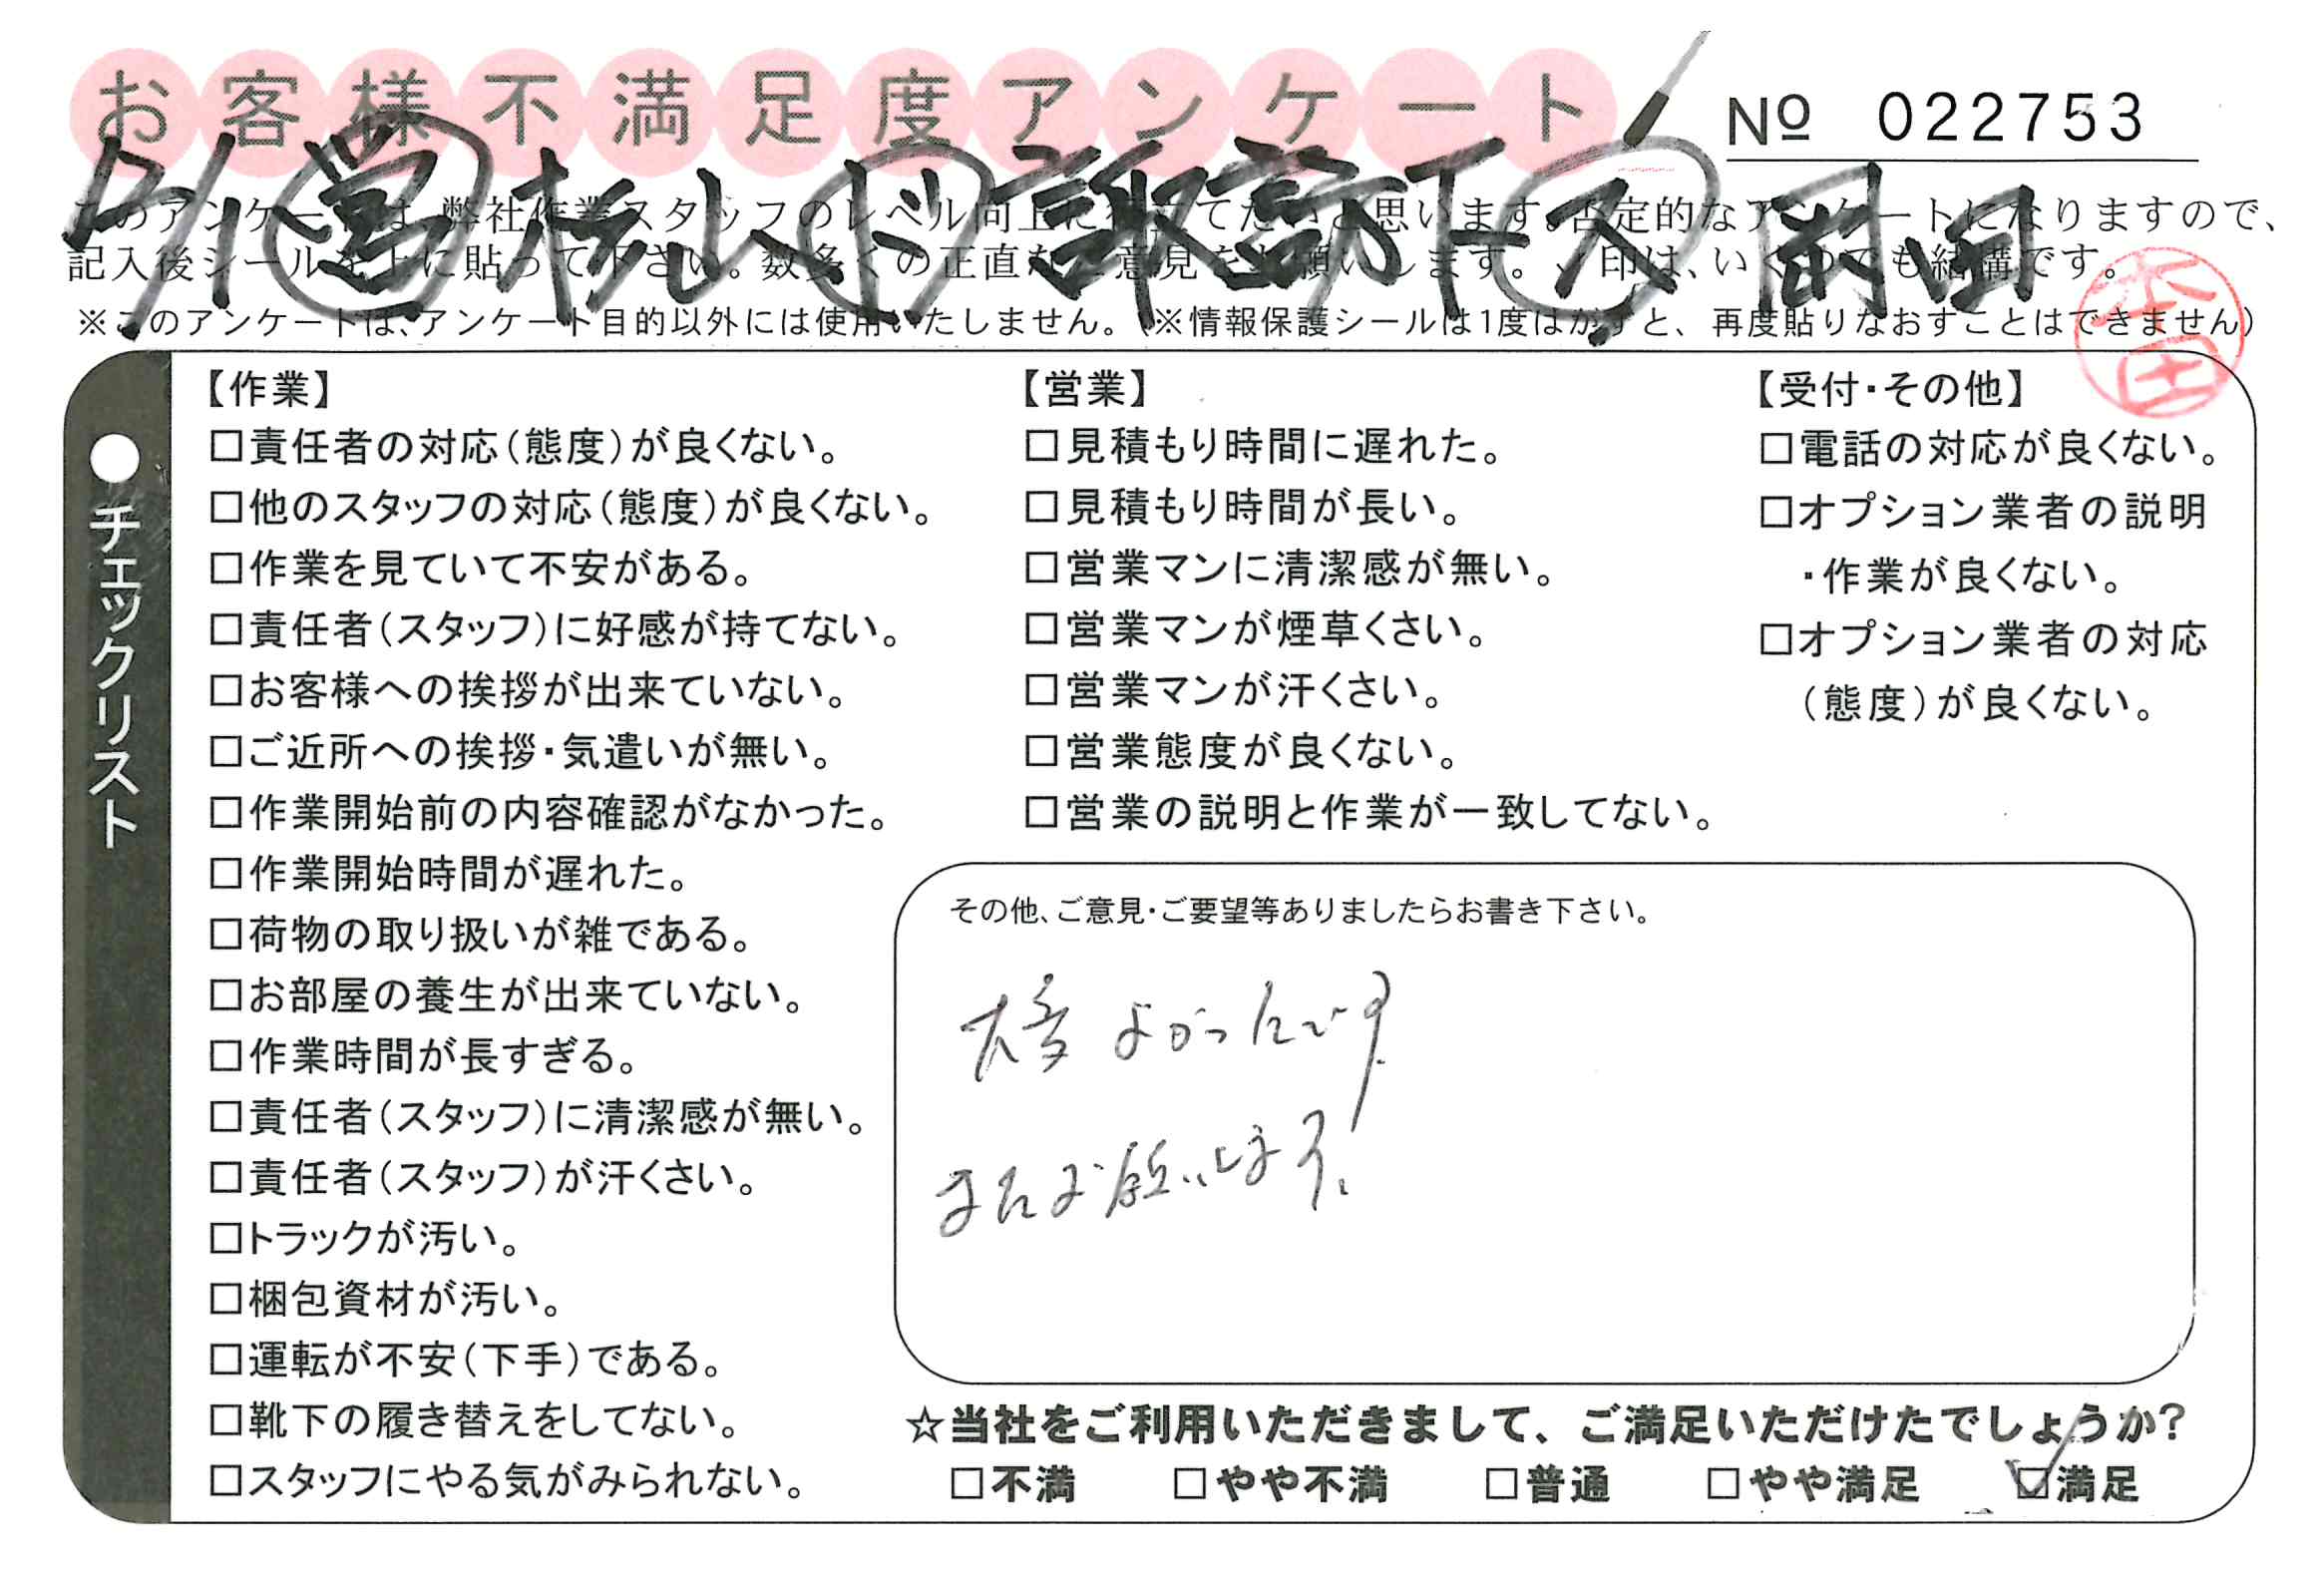 お客様不満足度アンケート
№ 022753
7/1 営 杉山 ド 諏訪下 ス 岡田
このアンケートは、弊社作業スタッフのレベル向上に役立てたいと思います。否定的なアンケートになりますので、
記入後シールを上に貼って下さい。数多くの正直なご意見をお願いします。✓印は、いくつでも結構です。
※このアンケートは、アンケート目的以外には使用いたしません。(※情報保護シールは1度はがすと、再度貼りなおすことはできません)
本田
●チェックリスト
【作業】
□責任者の対応(態度)が良くない。
□他のスタッフの対応(態度)が良くない。
□作業を見ていて不安がある。
□責任者(スタッフ)に好感が持てない。
□お客様への挨拶が出来ていない。
□ご近所への挨拶・気遣いが無い。
□作業開始前の内容確認がなかった。
□作業開始時間が遅れた。
□荷物の取り扱いが雑である。
□お部屋の養生が出来ていない。
□作業時間が長すぎる。
□責任者(スタッフ)に清潔感が無い。
□責任者(スタッフ)が汗くさい。
□トラックが汚い。
□梱包資材が汚い。
□運転が不安(下手)である。
□靴下の履き替えをしてない。
□スタッフにやる気がみられない。
【営業】
□見積もり時間に遅れた。
□見積もり時間が長い。
□営業マンに清潔感が無い。
□営業マンが煙草くさい。
□営業マンが汗くさい。
□営業態度が良くない。
□営業の説明と作業が一致してない。
【受付・その他】
□電話の対応が良くない。
□オプション業者の説明
・作業が良くない。
□オプション業者の対応
(態度)が良くない。
その他、ご意見・ご要望等ありましたらお書き下さい。
大変よかったです
またお願いします。
☆当社をご利用いただきまして、ご満足いただけたでしょうか?
□不満 □やや不満 □普通 □やや満足 ☑満足